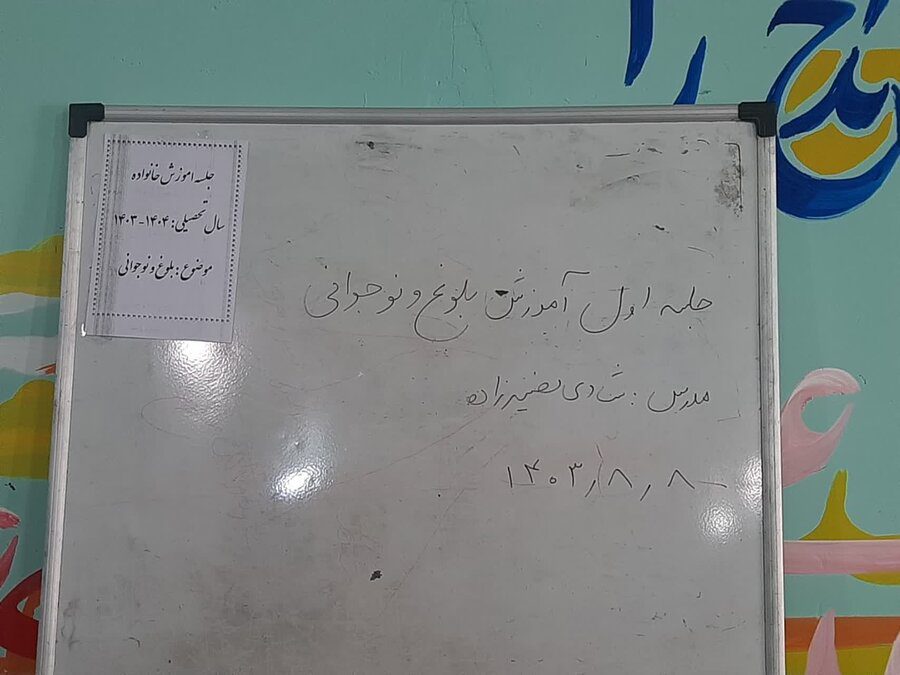 جلسه اموزش خانواده
سال تحصیلی: ۱۴۰۴-۱۴۰۳
موضوع: بلوغ و نوجوانی
جلسه اول آموزش بلوغ و نوجوانی
مدرس: شادی نصیرزاده
۱۴۰۳/۸/۸
را